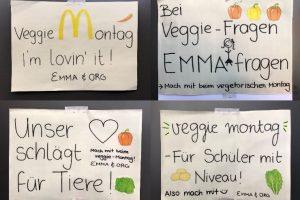 Veggie Montag
i'm lovin' it!
EMMA & ORG
Bei
Veggie-Fragen
EMMA fragen
→ Mach mit beim vegetarischen Montag
Unser
schlägt
für Tiere!
Mach mit beim
veggie-Montag!
EMMA & ORG
veggie montag
-Für Schüler mit
Niveau!
Also mach mit
EMMA & ORG